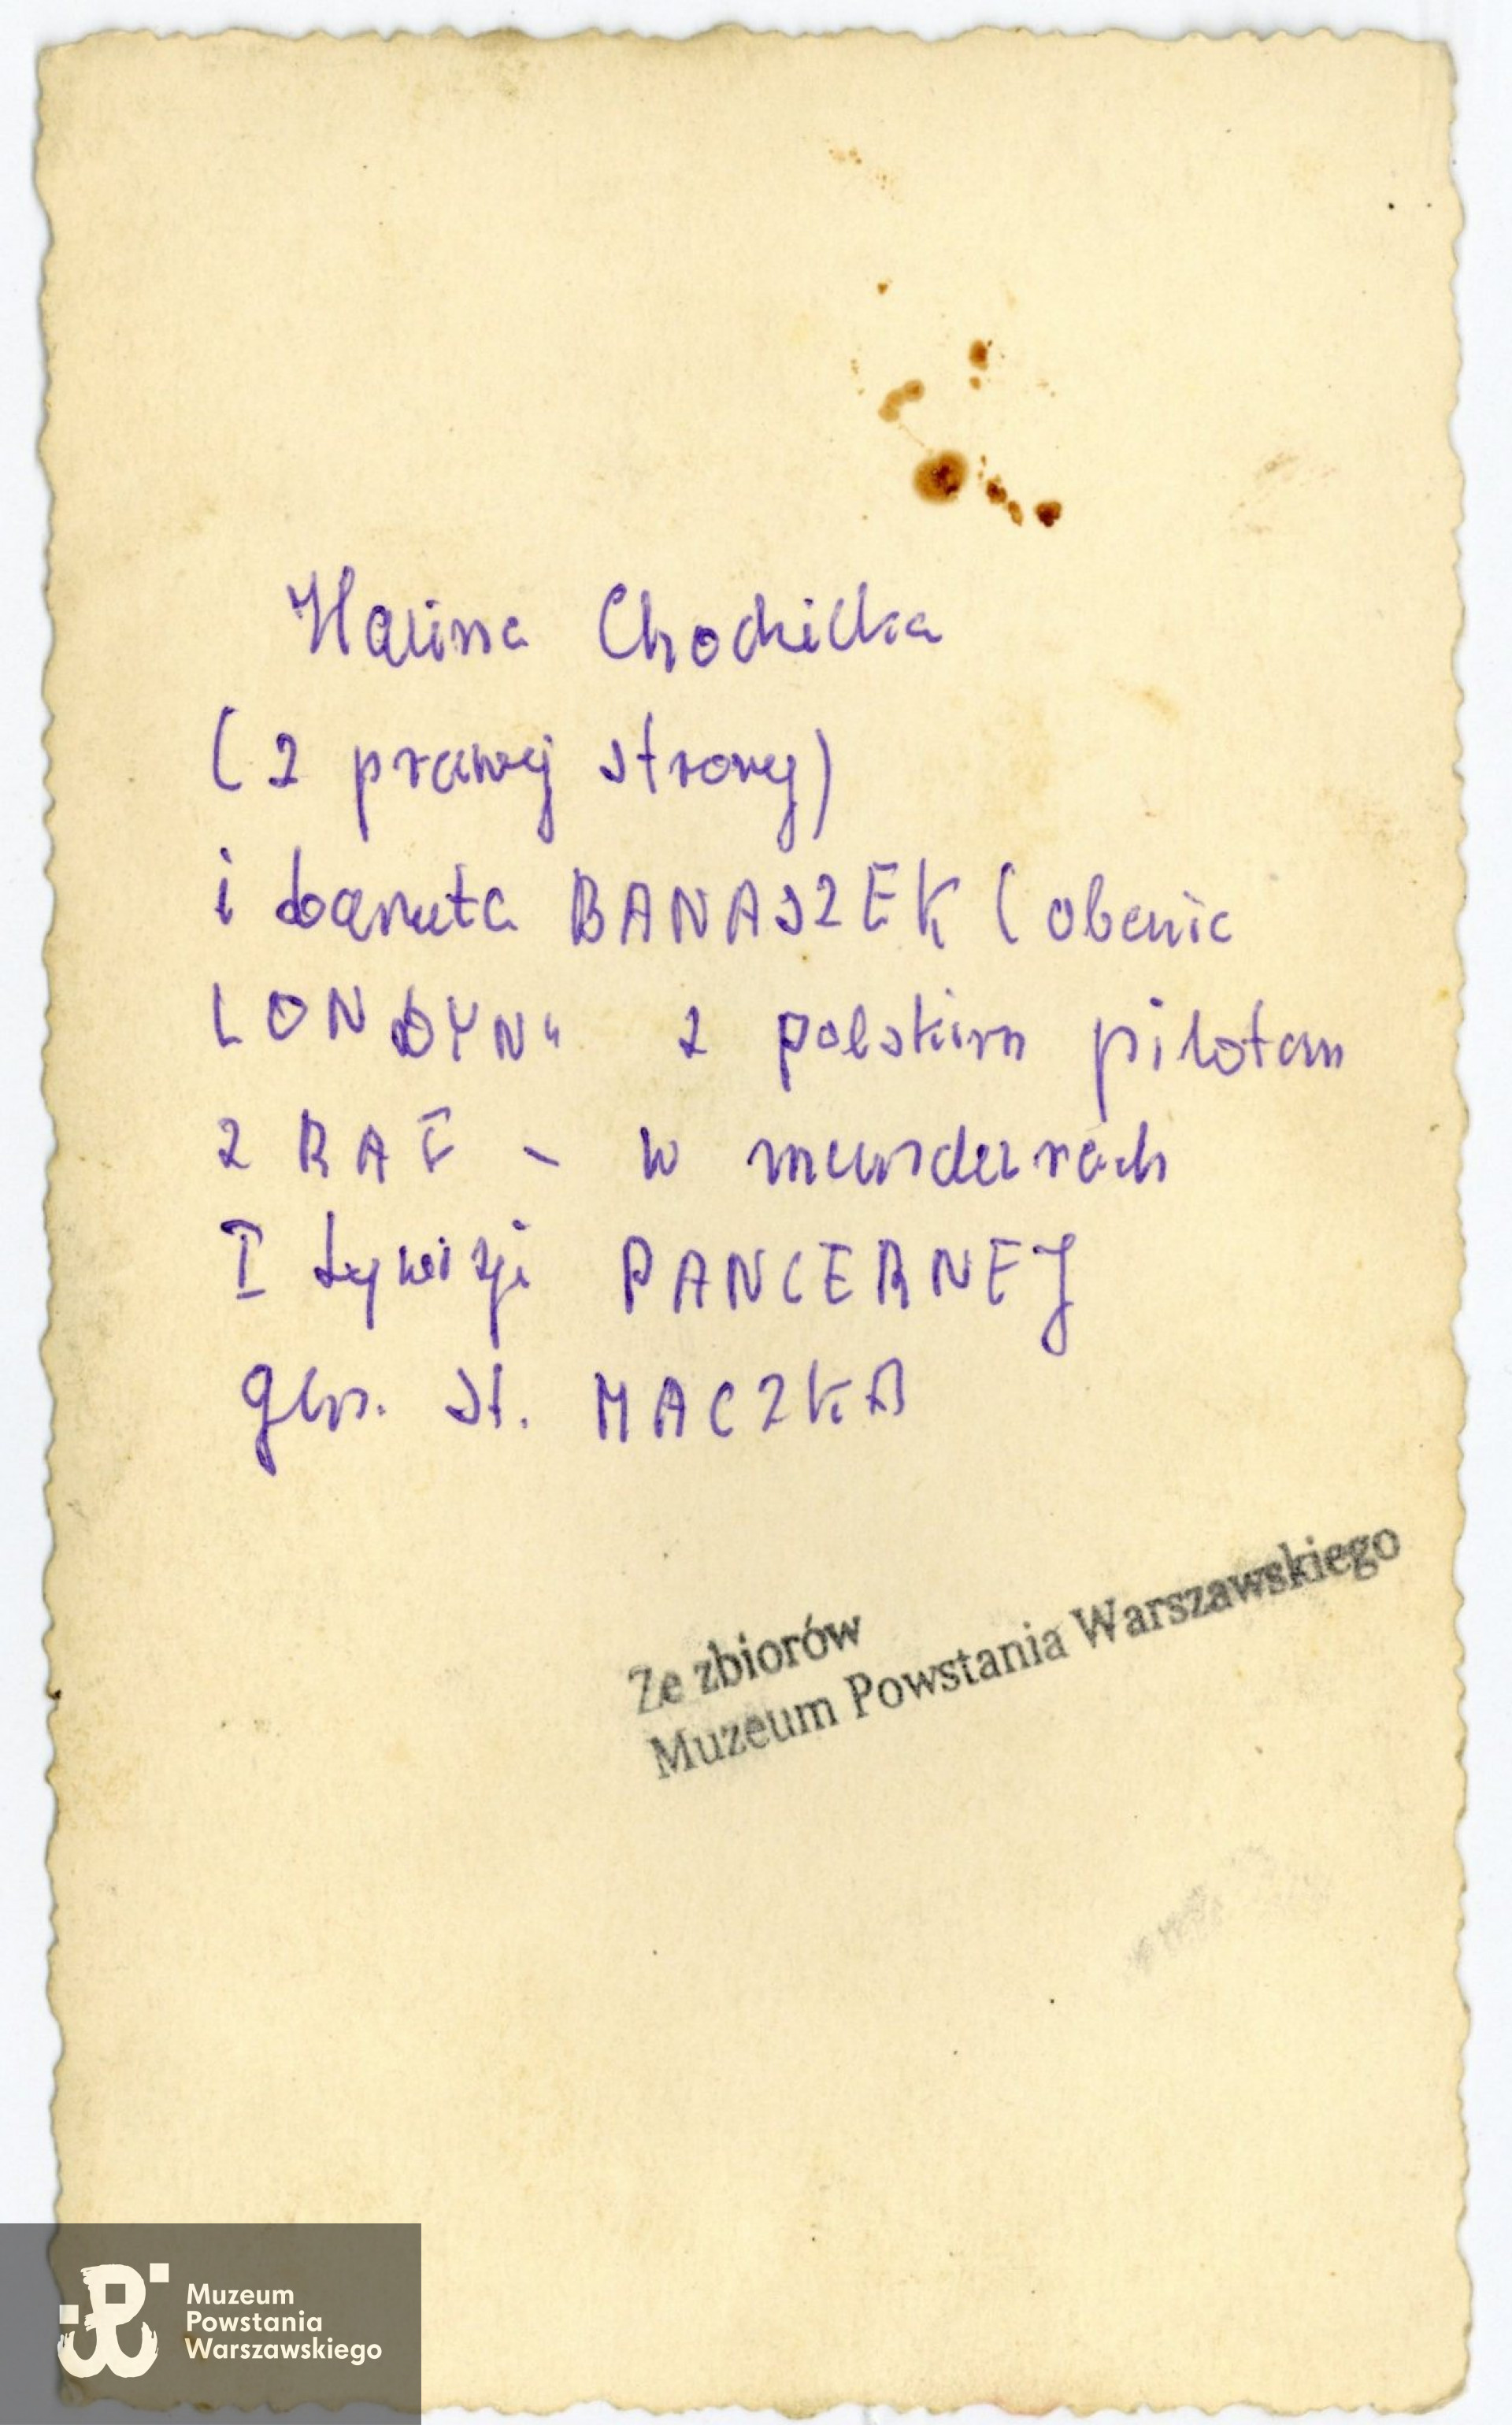 Halina Chodkilka
(z prawej strony)
i Danuta BANASZEK (obecnie
LONDYN" z polskim pilotem
z RAF - w mundurach
I Dywizji PANCERNEJ
gen. St. MACZKA
Ze zbiorów
Muzeum Powstania Warszawskiego
Muzeum
Powstania
Warszawskiego